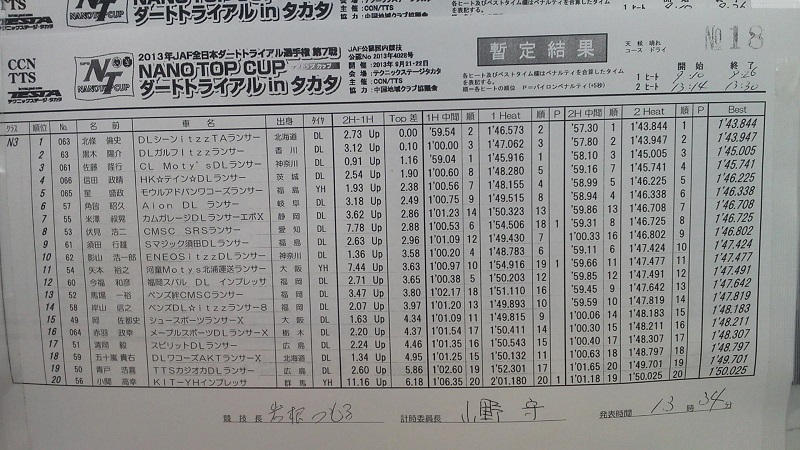 NANO TOP CUP
ダートトライアル in タカタ
協力：中国地域クラブ協議会
CCN
TTS
NT
NANOTOP CUP
TEIN
テクニックステージタカタ
2013年JAF全日本ダートトライアル選手権 第7戦
NANO TOP CUP
ダートトライアル in タカタ
JAF公認国内競技
公認No 2013年4028号
開催日：2013年9月21-22日
会場：テクニックステージタカタ
主催：CCN/TTS
協力：中国地域クラブ協議会
暫定結果
天候 晴れ
コース ドライ
No 18
各ヒート及びベストタイム欄はペナルティを合算したタイムを表記する。
各ヒートの順位 P=パイロンペナルティ(+5秒)
開始 終了
1ヒート 9:10 9:26
2ヒート 13:14 13:30
クラス 順位 No. 名前 車名 出身 タイヤ 2H-1H Top差 1H中間 順 1 Heat 順 P 2H中間 順 2 Heat 順 P Best
N3 1 063 北條 倫史 DLシーンitzzTAランサー 北海道 DL 2.73 Up 0.00 '59.54 2 1'46.573 2 '57.30 1 1'43.844 1 1'43.844
2 63 黒木 陽介 DLガルフitzzランサー 香川 DL 3.12 Up 0.10 1'00.00 3 1'47.062 3 '57.80 2 1'43.947 2 1'43.947
3 061 佐藤 隆行 CL Moty'sDLランサー 神奈川 DL 0.91 Up 1.16 '59.04 1 1'45.916 1 '58.10 3 1'45.005 3 1'45.005
4 066 信田 政晴 HK☆テイン☆DLランサー 茨城 DL 2.54 Up 1.90 1'00.60 8 1'48.280 5 '59.16 7 1'45.741 4 1'45.741
5 065 星 盛政 モウルアドバンワコーズランサー 福島 YH 1.93 Up 2.38 1'00.56 7 1'48.155 4 '58.99 5 1'46.225 5 1'46.338
6 57 角皆 昭久 Aion DL ランサー 岐阜 DL 3.18 Up 2.49 1'00.75 9 1'49.515 8 '58.94 4 1'46.338 6 1'46.338
7 55 米澤 叔晃 カムガレージDLランサーエボX 静岡 DL 3.62 Up 2.86 1'01.23 14 1'50.323 13 '59.86 13 1'46.708 7 1'46.708
8 53 伏見 浩二 CMSC SRSランサー 愛知 DL 7.78 Up 2.88 1'00.53 6 1'54.506 18 1 '59.31 8 1'46.725 8 1'46.725
9 61 須田 行雄 Sマジック須田DLランサー 福島 DL 2.63 Up 2.96 1'01.09 12 1'49.430 7 1'00.33 16 1'46.802 9 1'46.802
10 62 影山 浩一郎 ENEOSitzzDLランサー 神奈川 DL 1.36 Up 3.58 1'00.20 4 1'48.783 6 '59.11 6 1'47.424 10 1'47.424
11 54 矢本 裕之 河童Motys北浦運送ランサー 大阪 YH 7.44 Up 3.63 1'00.97 10 1'54.916 19 1 '59.66 11 1'47.477 11 1'47.477
12 60 今福 和彦 福岡スバル DL インプレッサ 福岡 DL 2.71 Up 3.65 1'00.38 5 1'50.203 12 '59.85 12 1'47.491 12 1'47.491
13 52 馬場 一裕 ペンズ絆CMSCランサー 福岡 DL 3.47 Up 3.80 1'02.17 18 1'51.110 16 '59.45 9 1'47.642 13 1'47.642
14 58 岸山 信之 ペンズDL☆itzzランサー8 福岡 DL 2.07 Up 3.97 1'01.20 13 1'49.893 10 '59.59 10 1'47.819 14 1'47.819
15 49 岡 佐都史 シュースポーツランサーX 大阪 DL 1.63 Up 4.34 1'01.09 11 1'49.815 9 1'00.06 14 1'48.183 15 1'48.183
16 064 赤羽 政幸 メープルスポーツDLランサーX 栃木 DL 2.20 Up 4.37 1'01.54 17 1'50.411 14 1'00.30 15 1'48.211 16 1'48.211
17 51 清岡 毅 スピリットDLランサー 広島 DL 2.24 Up 4.46 1'01.35 16 1'50.543 15 1'00.34 17 1'48.307 17 1'48.307
18 59 五十嵐 貴右 DLワコーズAKTランサー 北海道 DL 1.34 Up 4.95 1'01.25 15 1'50.132 11 1'00.63 18 1'48.797 18 1'48.797
19 50 青戸 浩嘉 TTSカジオカDLランサー 広島 DL 2.60 Up 5.86 1'02.60 19 1'52.301 17 1'01.65 20 1'49.701 19 1'49.701
20 56 小関 高幸 KIT-YHインプレッサ 群馬 YH 11.16 Up 6.18 1'06.35 20 2'01.180 20 1 1'01.18 19 1'50.025 20 1'50.025
競技長
計時委員長 小野 守
発表時間 13 時 34 分